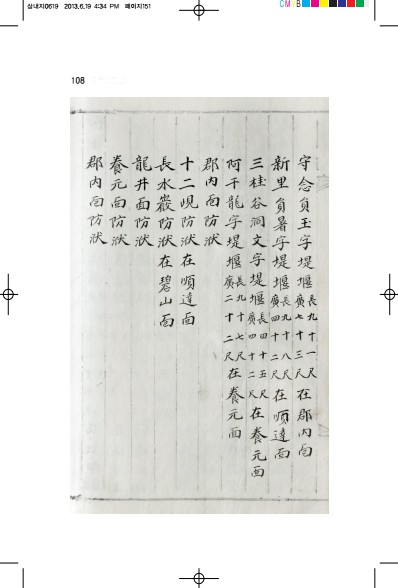 삼내지0619 2013.6.19 4:34 PM 페이지151
CM B
108
守念員玉字堤堰長九十一尺廣七十三尺在郡內面
新里員暑字堤堰長九十八尺廣四十二尺在順達面
三桂谷洞文字堤堰長四十五尺廣四十二尺在養元面
阿干龍字堤堰長九十七尺廣二十二尺在養元面
郡內面防洑
十二峴防洑在順達面
長水巖防洑在碧山面
龍井面防洑
養元面防洑
郡內面防洑